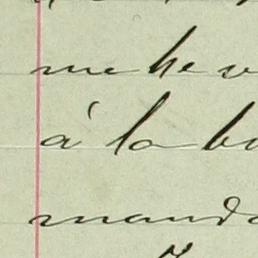 me he v
á la bu
manda